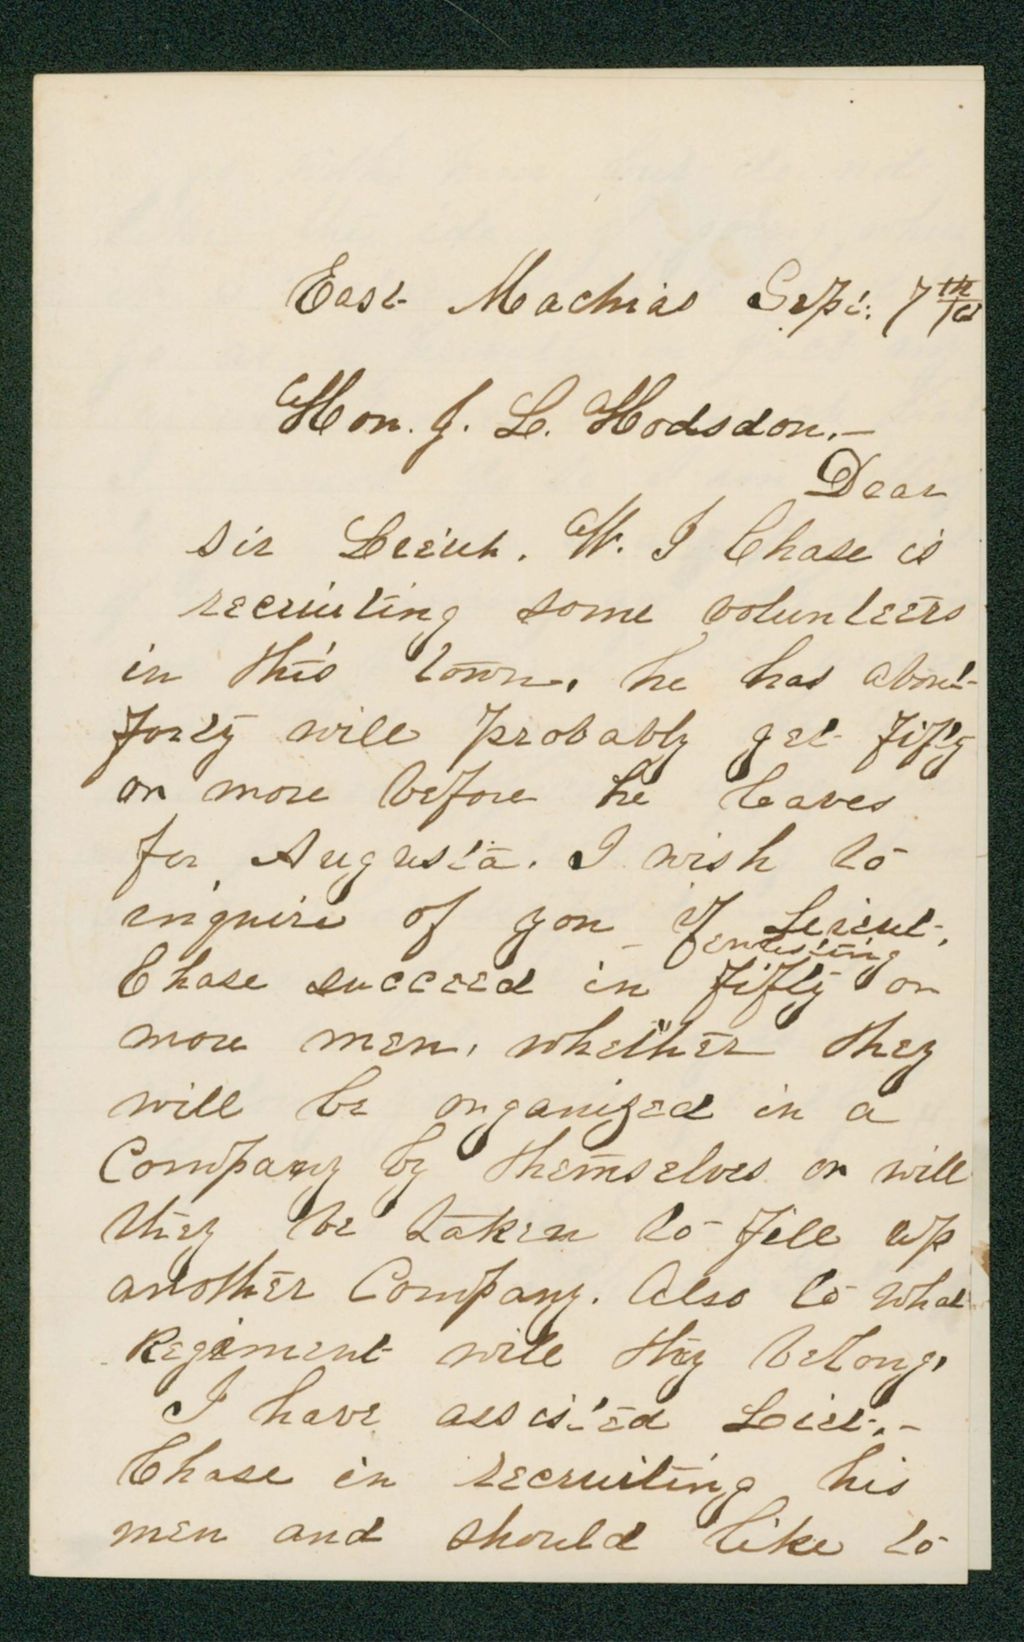 East Machias Sept. 7th/61
Hon. J. L. Hodsdon.—
Dear
Sir Leieut. W. I Chase is
recruiting some volunteers
in this town, he has about
forty will probably get fifty
or more before he leaves
for Augusta. I wish to
enquire of you if Leieut.
enlisting
Chase succeed in fifty or
more men, whether they
will be organized in a
Company by themselves or will
they be taken to fill up
another Company. Also to what
Regiment will they belong,
I have assisted Leiet.—
Chase in recruiting his
men and should like to